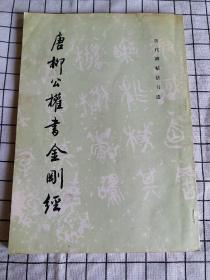 历代碑帖法书选
唐柳公權書金剛經